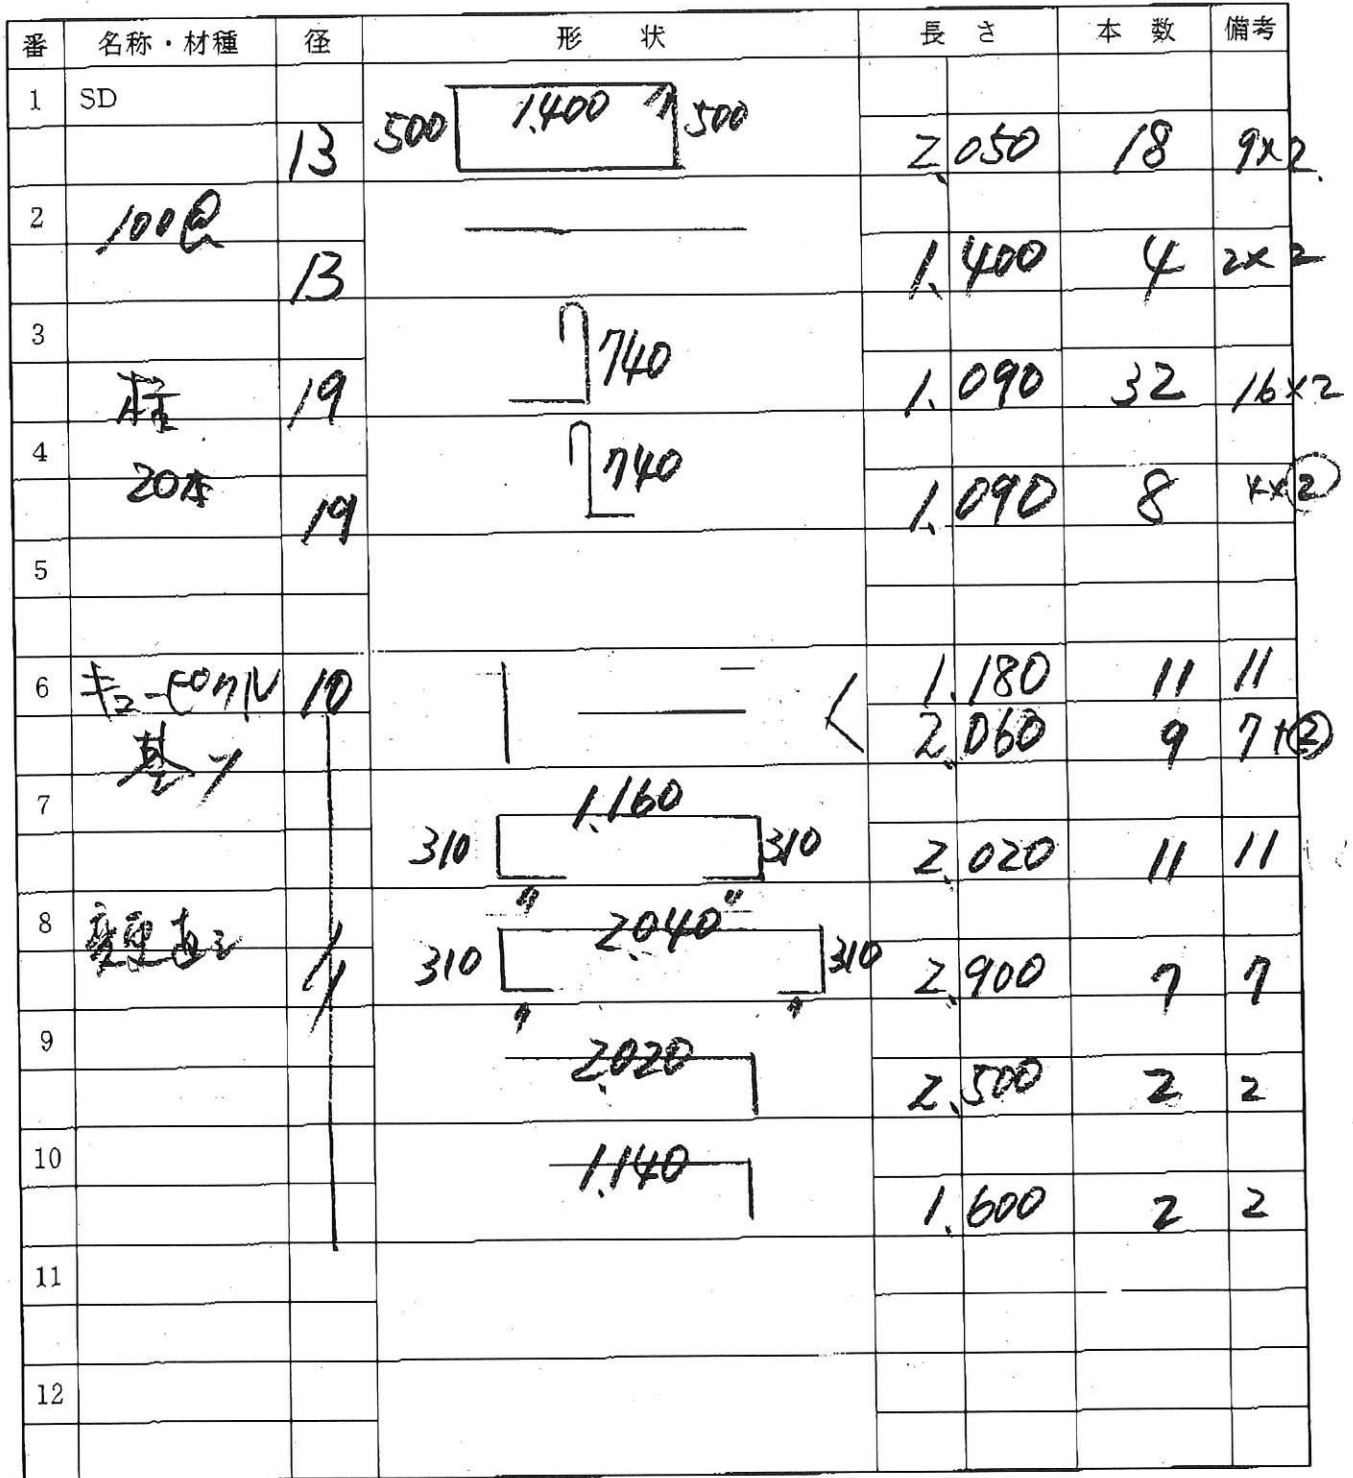 番 名称・材種 径 形 状 長 さ 本 数 備考
1 SD
13 500 1.400 500 2.050 18 9×2
2 100@
13 1.400 4 2×2
3
柱 19 740 1.090 32 16×2
4
20本 19 740 1.090 8 4×②
5
6 キュービクル 10 1.180 11 11
基ソ 2.060 9 7+②
7 1.160
310 310 2.020 11 11
8 〃 〃
変更 2.040
310 310 2.900 7 7
〃 〃
9 2.020
2.500 2 2
10 1.140
1.600 2 2
11
12